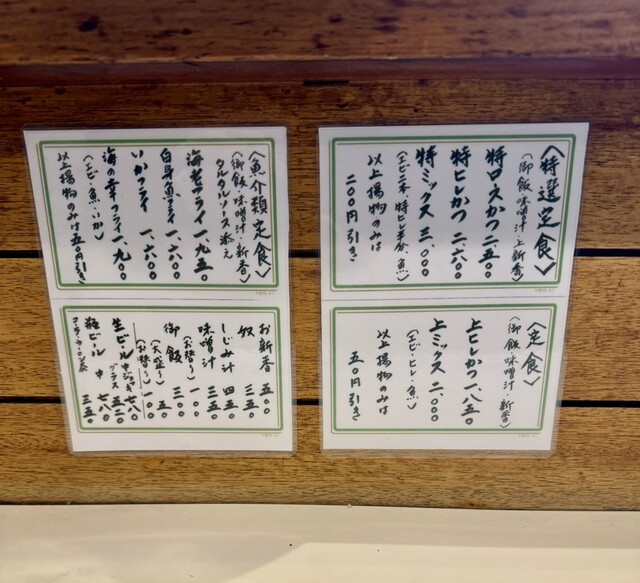 〈特選定食〉
(御飯・味噌汁・上新香)
特ロースかつ 二、五〇〇
特ヒレかつ 二、六〇〇
特ミックス 三、〇〇〇
以上揚物のみは
二〇〇円引き
〈定食〉
(御飯・味噌汁・新香)
上ヒレかつ 一、八五〇
上ミックス 二、〇〇〇
(エビ・ヒレ・魚)
以上揚物のみは
五〇円引き
〈魚介類定食〉
(御飯・味噌汁・新香)
タルタルソース添え
海老フライ 一、九五〇
白身魚フライ 一、六〇〇
いかフライ 一、六〇〇
海の幸フライ 一、九〇〇
(エビ・魚・いか)
以上揚物のみは五〇円引き
お新香 五〇〇
奴 三五〇
しじみ汁 四五〇
味噌汁 三五〇
(お替り) 一〇〇
御飯 三〇〇
(大盛り) 五〇
(お替り) 一〇〇
生ビール 中ジョッキ 七八〇
グラス 五二〇
瓶ビール 中 七八〇
三五〇